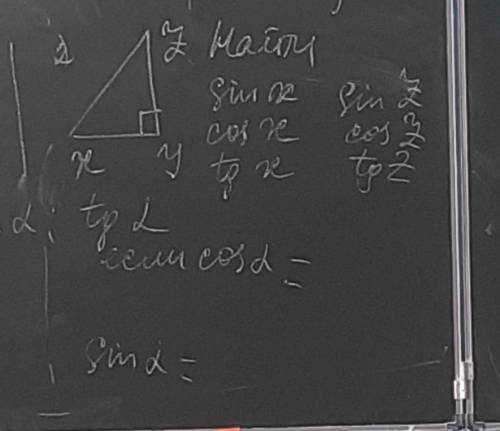 2
Z Найти
sin x sin Z
cos x cos Z
x y tg x tg Z
α: tg α
если cos α =
sin α =